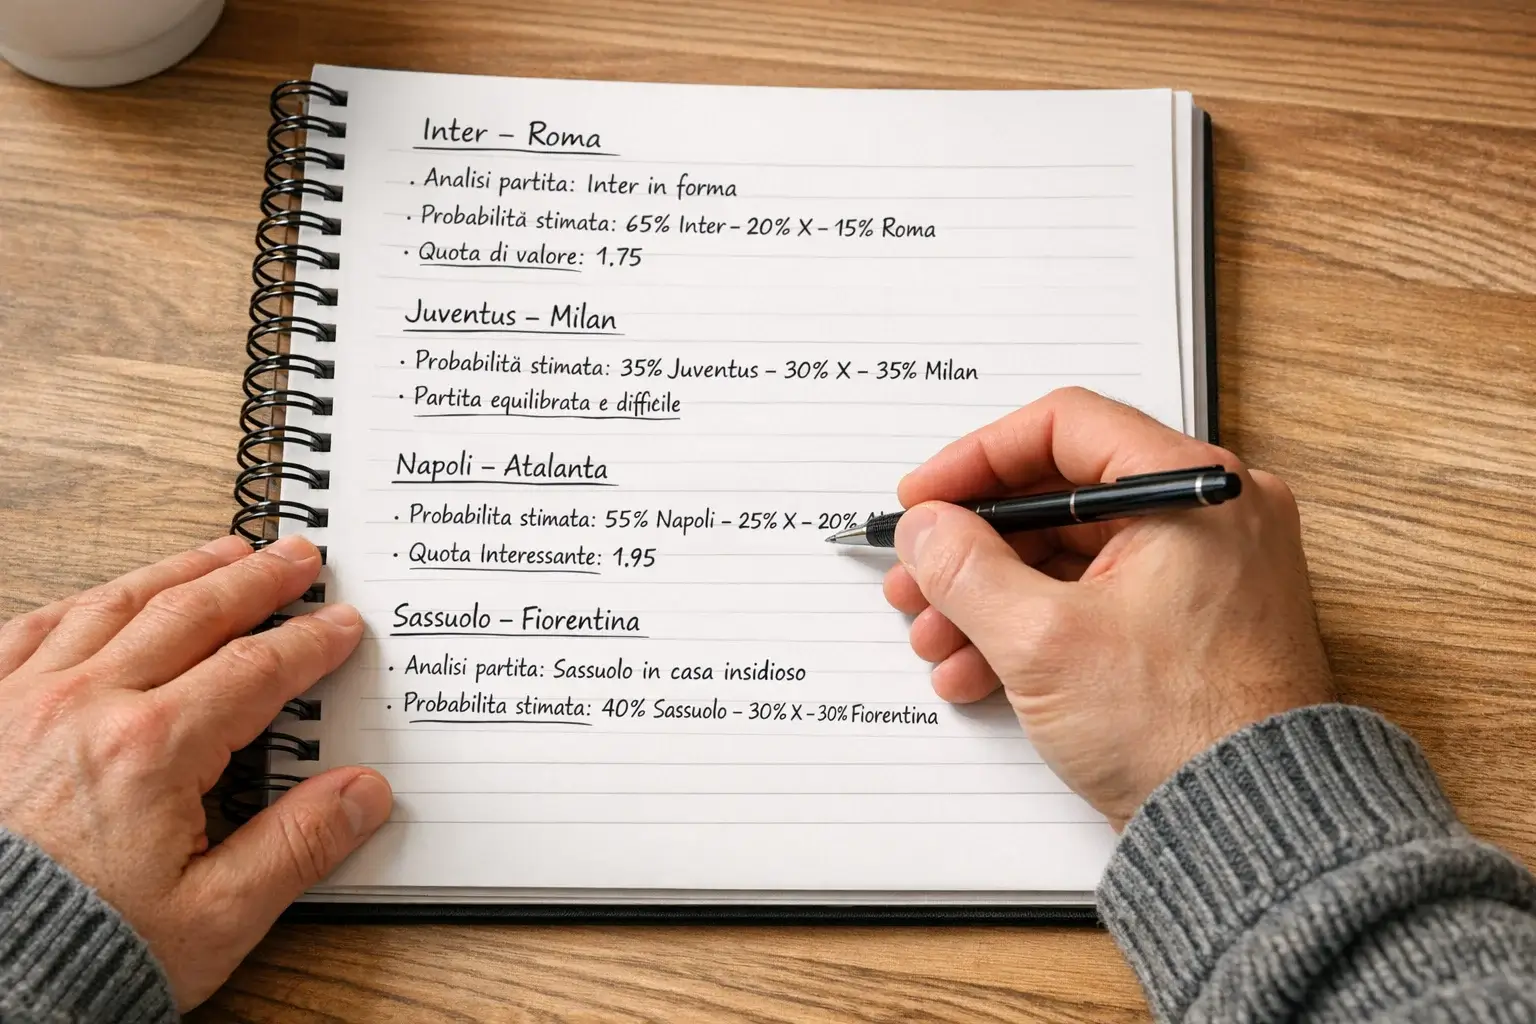 Inter – Roma
· Analisi partita: Inter in forma
· Probabilità stimata: 65% Inter – 20% X – 15% Roma
· Quota di valore: 1.75
Juventus – Milan
· Probabilità stimata: 35% Juventus – 30% X – 35% Milan
· Partita equilibrata e difficile
Napoli – Atalanta
· Probabilita stimata: 55% Napoli – 25% X – 20%
· Quota Interessante: 1.95
Sassuolo – Fiorentina
· Analisi partita: Sassuolo in casa insidioso
· Probabilita stimata: 40% Sassuolo – 30% X – 30% Fiorentina